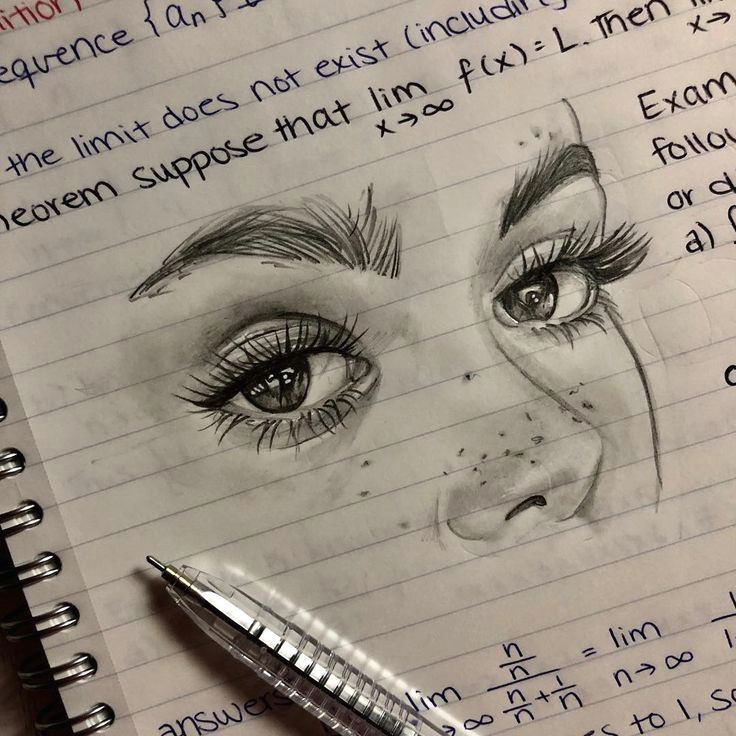 equence {aₙ}
the limit does not exist (including
heorem suppose that lim x→∞ f(x) = L. Then
x→
Exam
follow
or d
a)
answers
lim →∞ (n/n)/(n/n + 1/n) = lim n→∞
s to 1, so